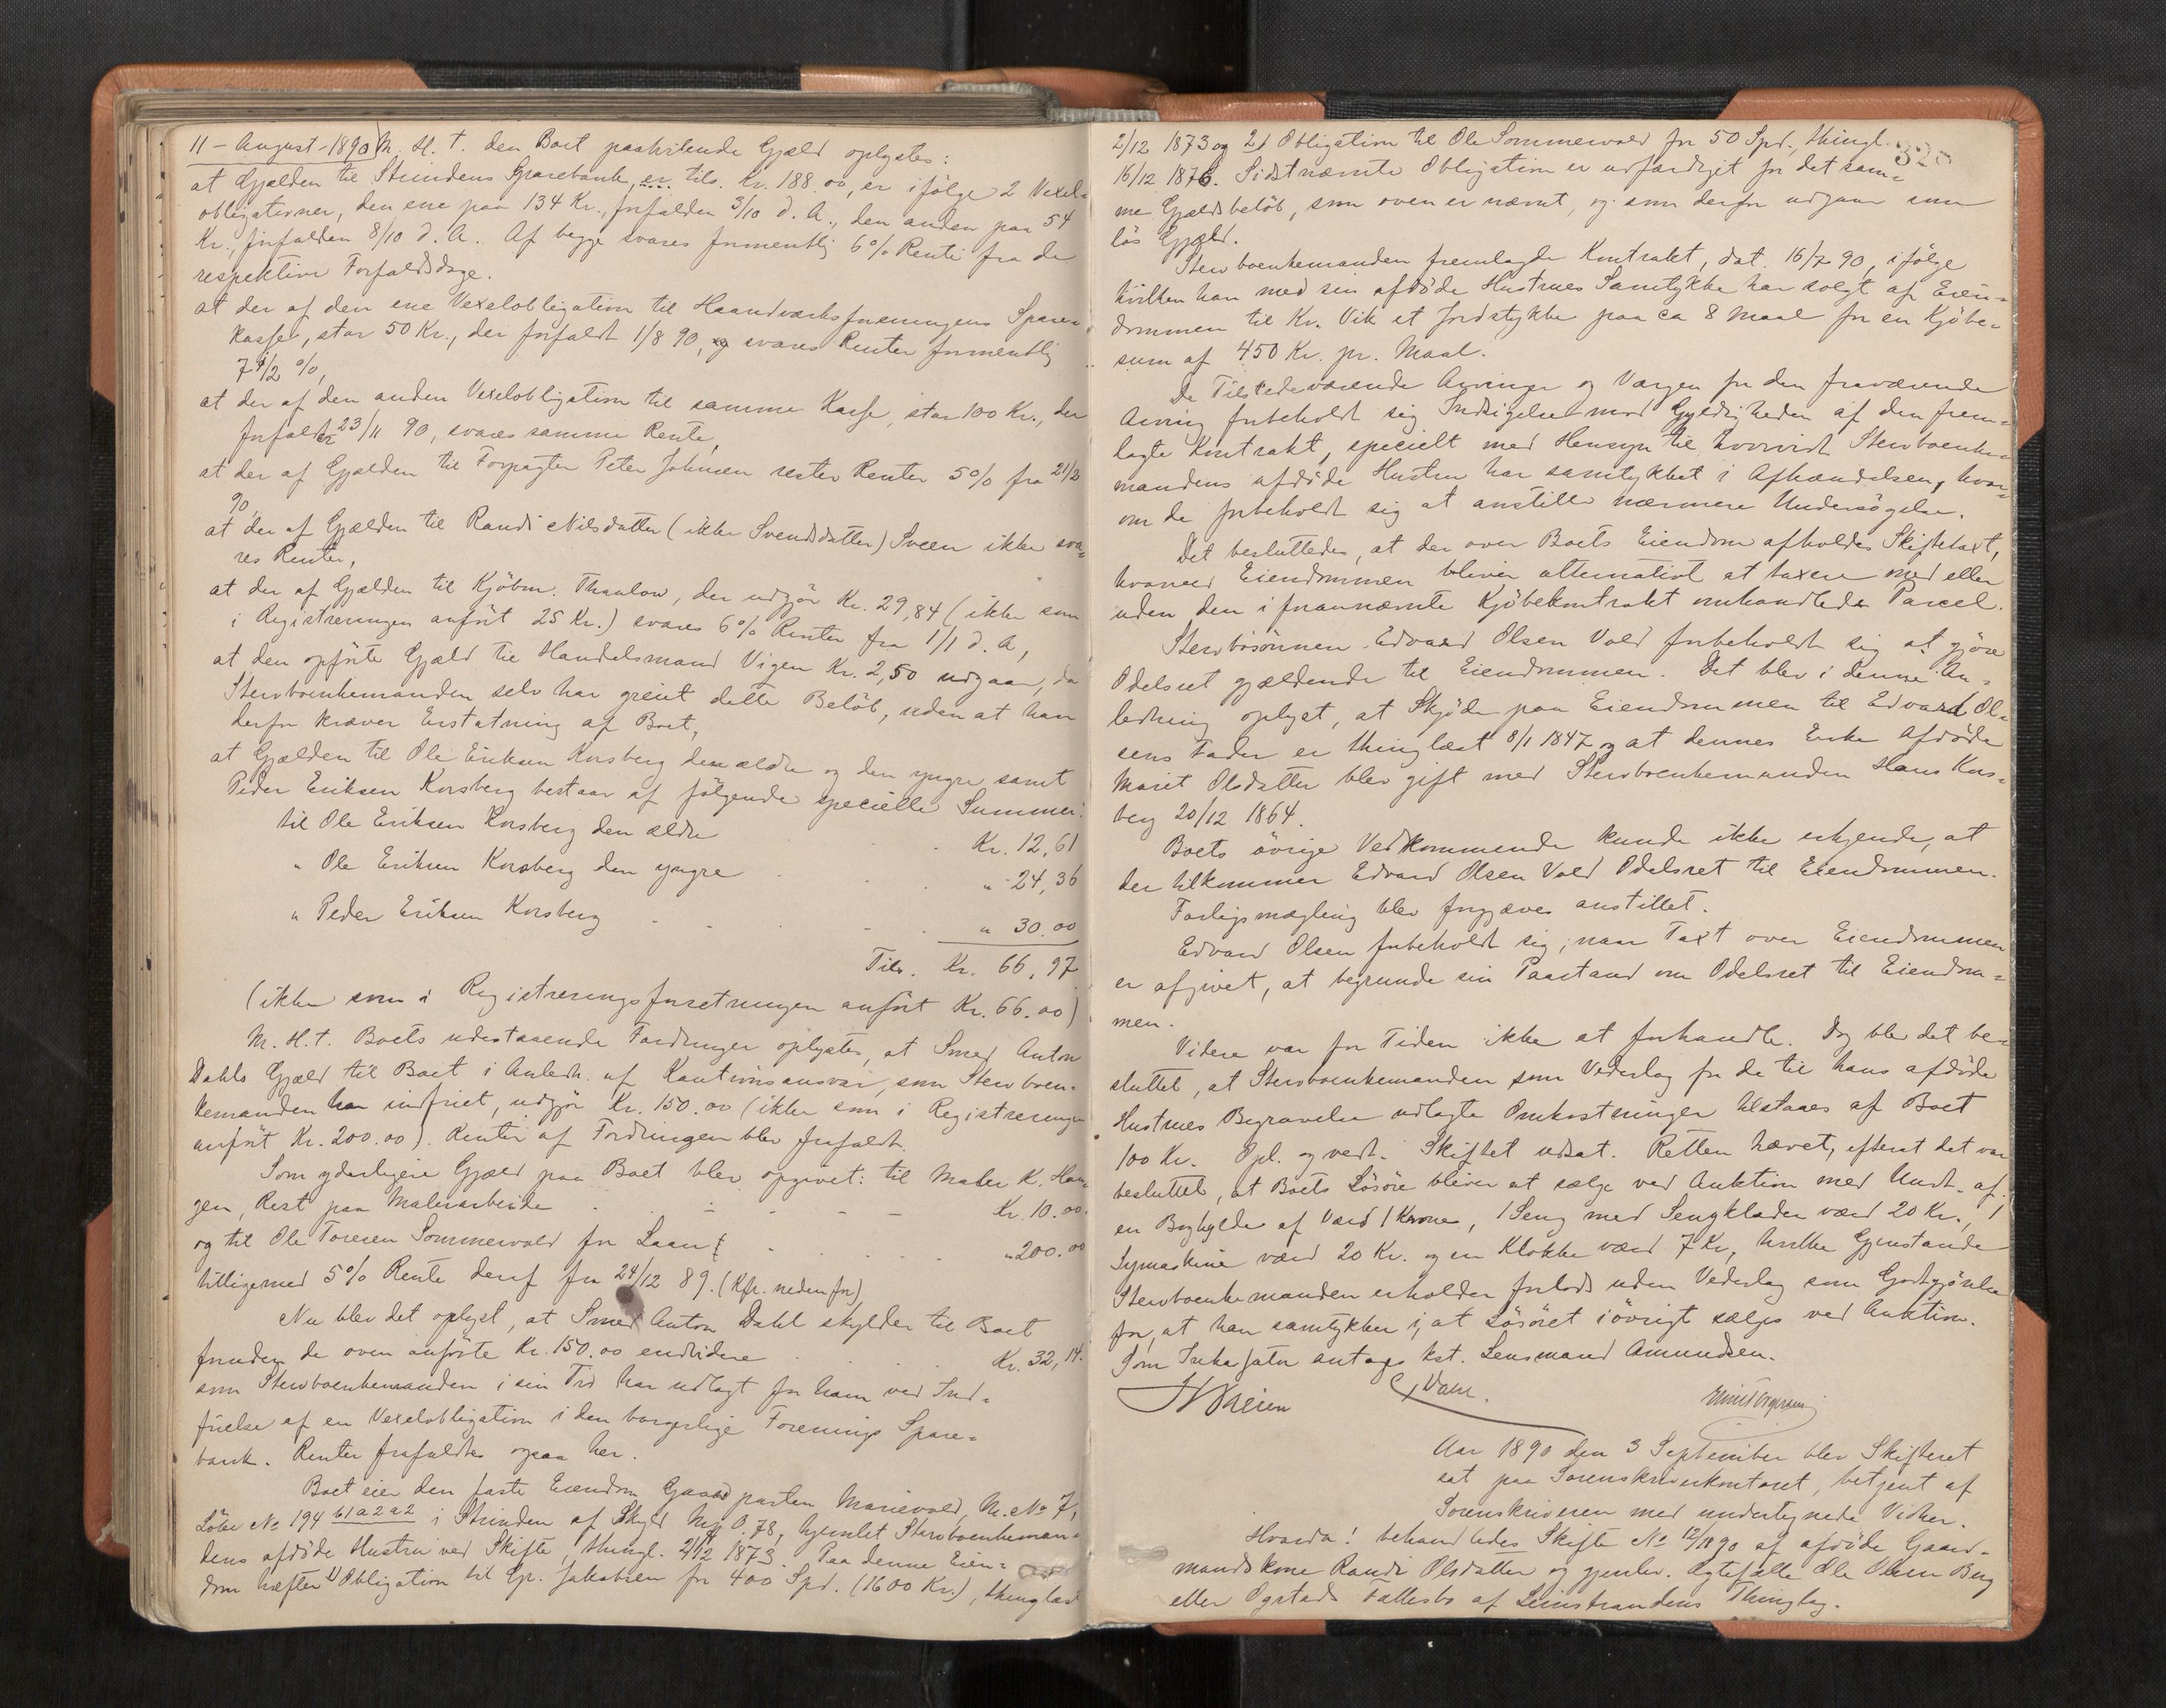 11 - August - 1890) M. H. t. den Boet paahvilende Gjæld oplystes:
at Gjælden til Strindens Sparebank, er tils. Kr. 188.00, er ifølge 2 Vexel-
obligationer, den ene paa 134 Kr., forfalden 3/10 d. A., den anden paa 54
Kr., forfalden 8/10 d. A. Af begge svares formentlig 6% Rente fra de
respektive Forfaldsdage.
at der af den ene Vexelobligation til Haandværksforeningens Spare-
kasse, stor 50 Kr., der forfaldt 1/8 90, svares Renter formentlig
7 1/2 %,
at der af den anden Vexelobligation til samme Kasse, stor 100 Kr., der
forfalder 23/11 90, svares samme Rente,
at der af Gjælden til Forpagter Peter Johnsen rester Renter 5% fra 21/2
90,
at der af Gjælden til Randi Nilsdatter (ikke Svendsdatter) Sveen ikke sva-
res Renter,
at der af Gjælden til Kjöbm. Thaulow, der udgjör Kr. 29,84 (ikke som
i Registreringen anfört 25 Kr.) svares 6% Renter fra 1/1 d. A,
at den opförte Gjæld til Handelsmand Vigen Kr. 2,50 udgaar, da
Stervboenkemanden selv har greiet dette Belöb, uden at han
derfor kræver Erstatning af Boet,
at Gjælden til Ole Eriksen Korsberg den ældre og den yngre samt
Peder Eriksen Korsberg bestaar af følgende specielle Summer:
til Ole Eriksen Korsberg den ældre Kr. 12,61
" Ole Eriksen Korsberg den yngre " 24,36
" Peder Eriksen Korsberg " 30.00
Tils. Kr. 66,97
(ikke som i Registreringsforretningen anfört Kr. 66.00)
M. H. t. Boets udestaaende Fordringer oplystes, at Smed Anton
Dahls Gjæld til Boet i Anledn. af Kautionsansvar, som Stervboen-
kemanden har indfriet, udgjör Kr. 150.00 (ikke som i Registreringen
anfört Kr. 200.00). Renter af Fordringen blev frafaldt.
Som yderligere Gjæld paa Boet blev opgivet: til Maler K. Hau-
gen, Rest paa Malerarbeide Kr. 10.00.
og til Ole Toresen Sommervold for Laan " 200.00
tilligemed 5% Rente deraf fra 24/12 89. (Kfr. nedenfor)
Nu blev det oplyst, at Smed Anton Dahl skylder til Boet
foruden de oven anförte Kr. 150.00 endvidere Kr. 32,14.
som Stervboenkemanden i sin Tid har udlagt for ham ved Ind-
frielse af en Vexelobligation i den borgerlige Forenings Spare-
bank. Renter frafaldtes ogsaa her.
Boet eier den faste Eiendom Gaardparten Marievold, M. No 7,
Löbe No 194 b1a2a2 i Strinden af Skyld Mk 0.78, hjemlet Stervboenkeman-
dens afdöde Hustru ved Skifte, thingl. 2/12 1873. Paa denne Eien-
dom hæfter 1) Obligation til Gr. Jakobsen for 400 Spd. (1600 Kr.), thinglæst
325
2/12 1873 og 2) Obligation til Ole Sommervold for 50 Spd., thingl.
16/12 1876. Sidstnævnte Obligation er udfærdiget for det sam-
me Gjældsbelöb, som oven er nævnt, og som derfor udgaar som
lös Gjæld.
Stervboenkemanden fremlagde Kontrakt, dat. 16/7 90, ifölge
hvilken han med sin afdöde Hustrues Samtykke har solgt af Eien-
dommen til Kr. Vik et Jordstykke paa ca 8 Maal for en Kjöbe-
sum af 450 Kr. pr. Maal.
De Tilstedeværende Arvinger og Værgen for den fraværende
Arving forbeholdt sig Indsigelse mod Gyldigheden af den frem-
lagte Kontrakt, specielt med Hensyn til hvorvidt Stervboenke-
mandens afdöde Hustru har samtykket i Afhændelsen, hvor-
om de forbeholdt sig at anstille nærmere Undersögelse.
Det besluttedes, at der over Boets Eiendom afholdes Skiftetaxt,
hvorved Eiendommen bliver alternativt at taxere med eller
uden den i forannævnte Kjöbekontrakt omhandlede Parcel.
Stervbosönnen Edvard Olsen Vold forbeholdt sig at gjöre
Odelsret gjældende til Eiendommen. Det blev i denne An-
ledning oplyst, at Skjöde paa Eiendommen til Edvard Ol-
sens Fader er thinglæst 8/1 1847 og at dennes Enke Afdöde
Marit Olsdatter blev gift med Stervboenkemanden Hans Kors-
berg 20/12 1864.
Boets övrige Vedkommende kunde ikke erkjende, at
der tilkommer Edvard Olsen Vold Odelsret til Eiendommen.
Forligsmægling blev forgjæves anstillet.
Edvard Olsen forbeholdt sig, naar Taxt over Eiendommen
er afgivet, at begrunde sin Paastand om Odelsret til Eiendom-
men.
Videre var for Tiden ikke at forhandle. Dog blev det be-
sluttet, at Stervboenkemanden som Vederlag for de til hans afdöde
Hustrues Begravelse udlagte Omkostninger tilstaaes af Boet
100 Kr. Opl. og vedt. Skiftet udsat. Retten hævet, efterat det var
besluttet, at Boets Lösöre bliver at sælge ved Auktion med Undt. af
en Boghylde af Værd 1 Krone, 1 Seng med Sengklæder værd 20 Kr., 1
Symaskine værd 20 Kr. og en Klokke værd 7 Kr., hvilke Gjenstande
Stervboenkemanden erholder forlods uden Vederlag som Godtgjörelse
for, at han samtykker i, at Lösöret iövrigt sælges ved Auktion.
Som Inkassator antages kst. Lensmand Amundsen.
Aar 1890 den 3 September blev Skifteret
sat paa Sorenskriverkontoret, betjent af
Sorenskriveren med undertegnede Vidner.
Hvorda! behandledes Skifte No 12/1890 af afdöde Gaard-
mandskone Randi Olsdatter og gjenlev. Ægtefælle Ole Olsen Berg
eller Ogstads Fællesbo af Leinstrandens Thinglag.